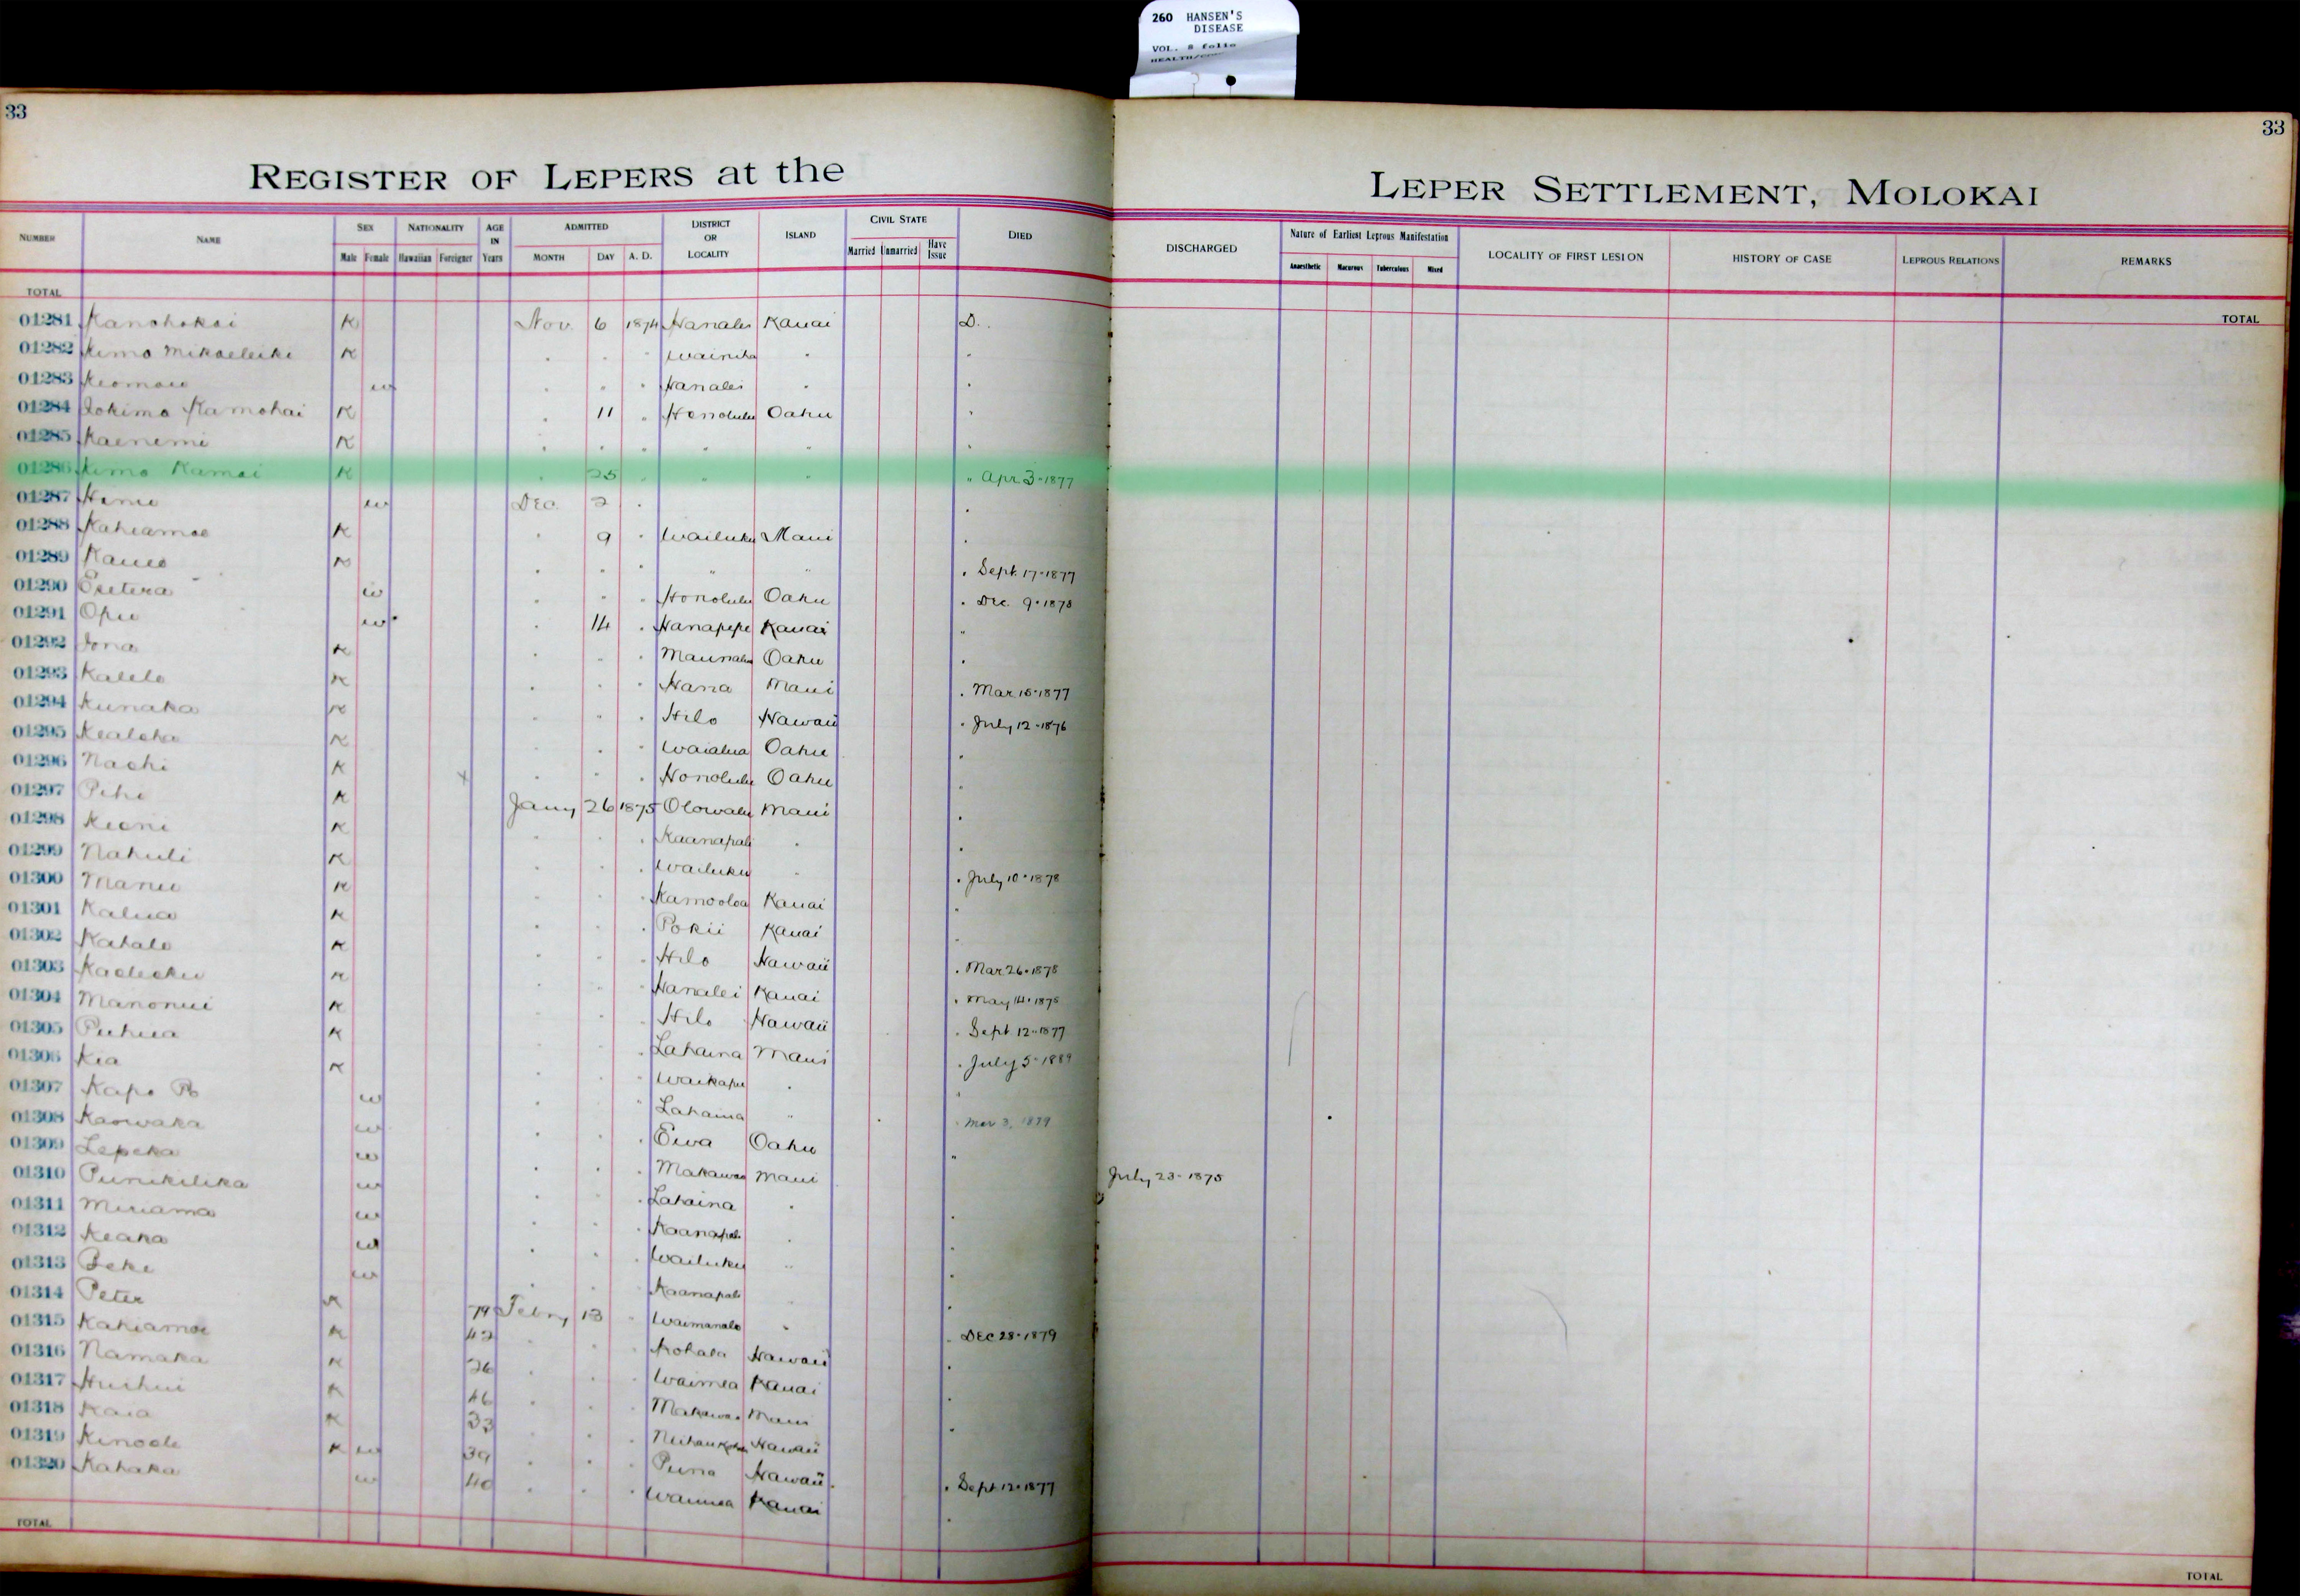 260 HANSEN'S
DISEASE
VOL. 8 folio
33
33
REGISTER OF LEPERS at the LEPER SETTLEMENT, MOLOKAI
NUMBER NAME SEX NATIONALITY AGE IN Years ADMITTED DISTRICT OR LOCALITY ISLAND CIVIL STATE DIED DISCHARGED Nature of Earliest Leprous Manifestation LOCALITY OF FIRST LESION HISTORY OF CASE LEPROUS RELATIONS REMARKS
Male Female Hawaiian Foreigner MONTH DAY A. D. Married Unmarried Have Issue Anaesthetic Macurous Tuberculous Mixed
TOTAL TOTAL
01281 Kanohokai K Nov. 6 1874 Hanalei Kauai D.
01282 Kimo Mikaeleiki K " " " Wainiha " "
01283 Keomaw w " " " Hanalei " "
01284 Iokimo Kamohai K " 11 " Honolulu Oahu "
01285 Kaenemi K " " " " " "
01286 Kimo Kamai K " 25 " " " " Apr. 3-1877
01287 Hanu w Dec. 2 " "
01288 Kahiamoe K " 9 " Wailuku Maui "
01289 Kaueo K " " " " " " Sept. 17-1877
01290 w " " " Honolulu Oahu " Dec. 9-1878
01291 Opu w " 14 " Hanapepe Kauai "
01292 Iona K " " " Maunalua Oahu "
01293 Kalelo K " " " Hana Maui " Mar 15-1877
01294 Kunaka K " " " Hilo Hawaii " July 12-1876
01295 Kealoha K " " " Waialua Oahu "
01296 Naohi K x " " " Honolulu Oahu "
01297 Pihi K Jany 26 1875 Olowalu Maui "
01298 Keoni K " " " Kaanapali " "
01299 Nahuli K " " " Wailuku " " July 10-1878
01300 Manu K " " " Kamooloa Kauai "
01301 Kalua K " " " Pokii Kauai "
01302 Kahalo K " " " Hilo Hawaii " Mar 26-1878
01303 K " " " Hanalei Kauai " May 14-1875
01304 Manonui K " " " Hilo Hawaii " Sept 12-1877
01305 Puhua K " " " Lahaina Maui " July 5-1889
01306 Kia K " " " Waikapu " "
01307 Kapo Po w " " " Lahaina " " Mar 3, 1879
01308 Kaowaka w " " " Ewa Oahu "
01309 Lepeka w " " " Makawao Maui July 23-1875
01310 Punikilika w " " " Lahaina " "
01311 Miriama w " " " Kaanapali " "
01312 Keaka w " " " Wailuku " "
01313 Beke w " " " Kaanapali " "
01314 Peter K 79 Febry 13 " Waimanalo " " Dec 28-1879
01315 Kahiamoe K 42 " " " Kohala Hawaii "
01316 Namaka K 26 " " " Waimea Kauai "
01317 Huihui K 46 " " " Makawao Maui "
01318 Kaia K 33 " " " Hawaii
01319 Kinoole K w 39 " " " Puna Hawaii " Sept 12-1877
01320 Kahaka w 40 " " " Waimea Kauai "
TOTAL TOTAL